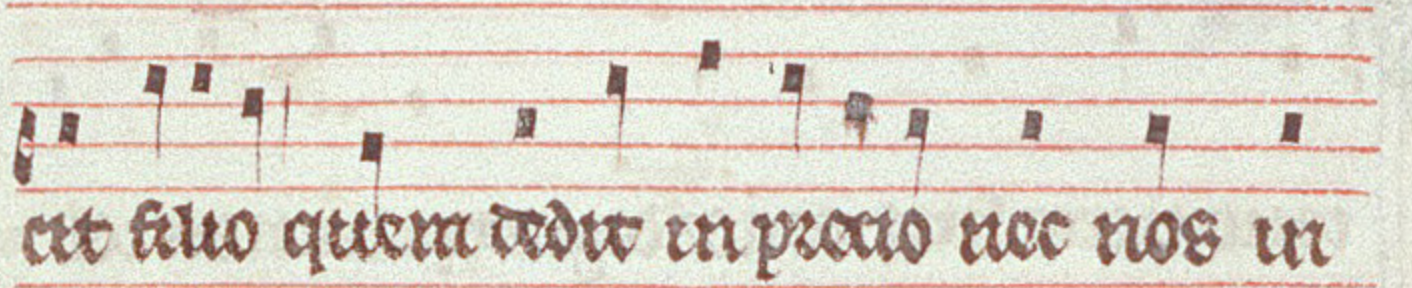 cit filio quem dedit in precio nec nos in